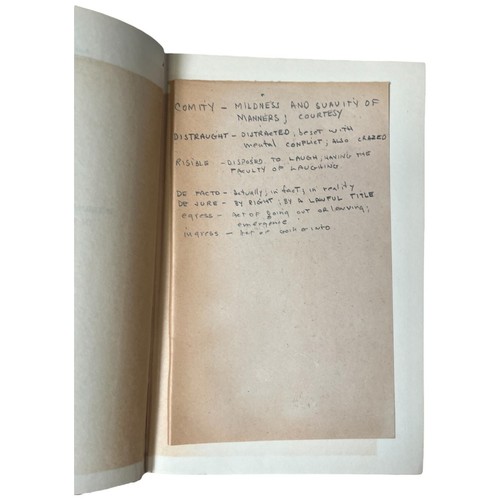 COMITY - MILDNESS AND SUAVITY OF
MANNERS; COURTESY
DISTRAUGHT - DISTRACTED; beset with
mental CONFLICT; ALSO CRAZED
RISIBLE - DISPOSED TO LAUGH; HAVING THE
FACULTY OF LAUGHING
DE FACTO - Actually; in fact; in reality
DE JURE - BY RIGHT; BY A LAWFUL TITLE
egress - Act of going out or leaving;
emergence
ingress - Act of into